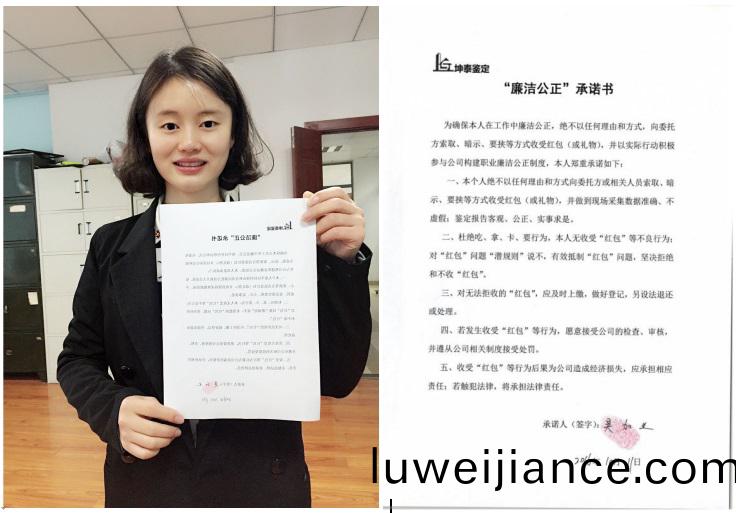 坤泰鉴定
“廉洁公正”承诺书
为确保本人在工作中廉洁公正，绝不以任何理由和方式，向委托
方索取、暗示、要挟等方式收受红包（或礼物），并以实际行动积极
参与公司构建职业廉洁公正制度，本人郑重承诺如下：
一、本个人绝不以任何理由和方式向委托方或相关人员索取、暗
示、要挟等方式收受红包（或礼物），并做到现场采集数据准确、不
虚假；鉴定报告客观、公正、实事求是。
二、杜绝吃、拿、卡、要行为，本人无收受“红包”等不良行为；
对“红包”问题“潜规则”说不，有效抵制“红包”问题，坚决拒绝
和不收“红包”。
三、对无法拒收的“红包”，应及时上缴，做好登记，另设法退还
或处理。
四、若发生收受“红包”等行为，愿意接受公司的检查、审核，
并遵从公司相关制度接受处罚。
五、收受“红包”等行为后果为公司造成经济损失，应承担相应
责任；若触犯法律，将承担法律责任。
承诺人（签字）：
日
luweijiance.com